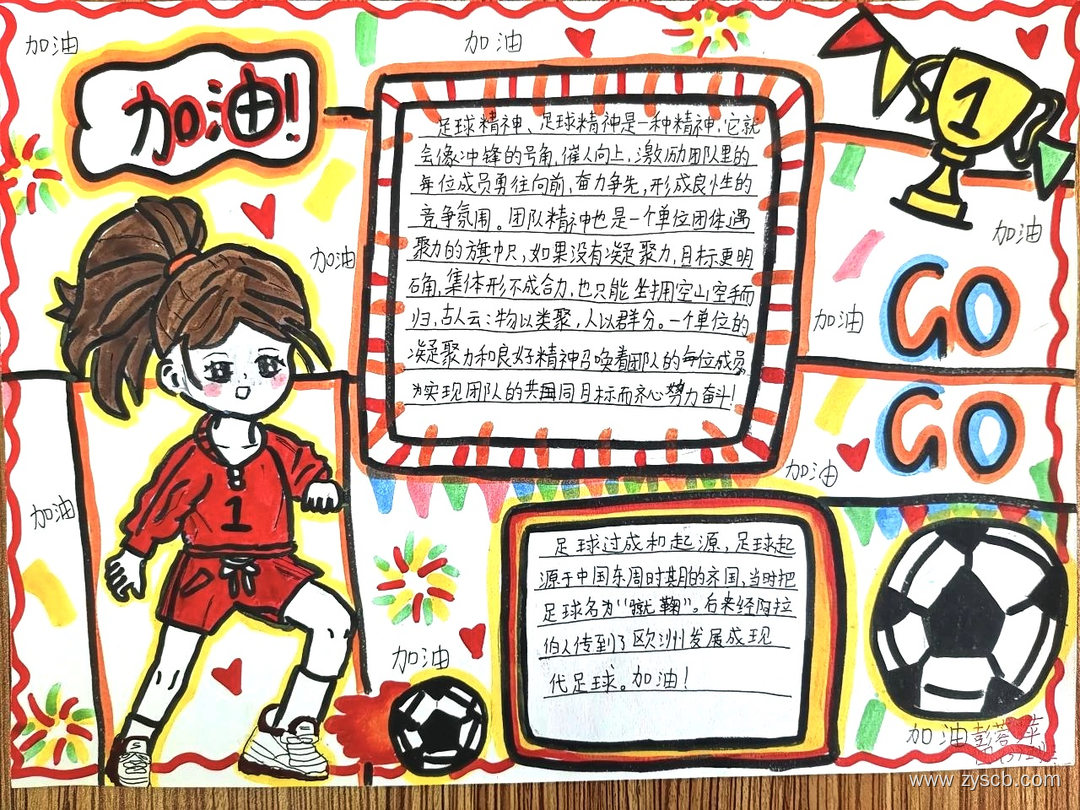 加油
加油
加油!
足球精神、足球精神是一种精神,它就
会像冲锋的号角,催人向上,激励团队里的
每位成员勇往向前,奋力争先,形成良性的
竞争氛围。团队精神也是一个单位团体遇
聚力的旗帜,如果没有凝聚力,目标更明
确,集体形不成合力,也只能坐拥空山空手而
归,古人云:物以类聚,人以群分。一个单位的
凝聚力和良好精神召唤着团队的每位成员
为实现团队的共同目标而齐心努力奋斗!
1
加油
加油
GO
加油
GO
加油
加油
1
足球过成和起源,足球起
源于中国东周时期的齐国,当时把
足球名为“蹴鞠”。后来经阿拉
伯人传到了欧洲发展成现
代足球。加油!
加油
加油
www.zyscb.com